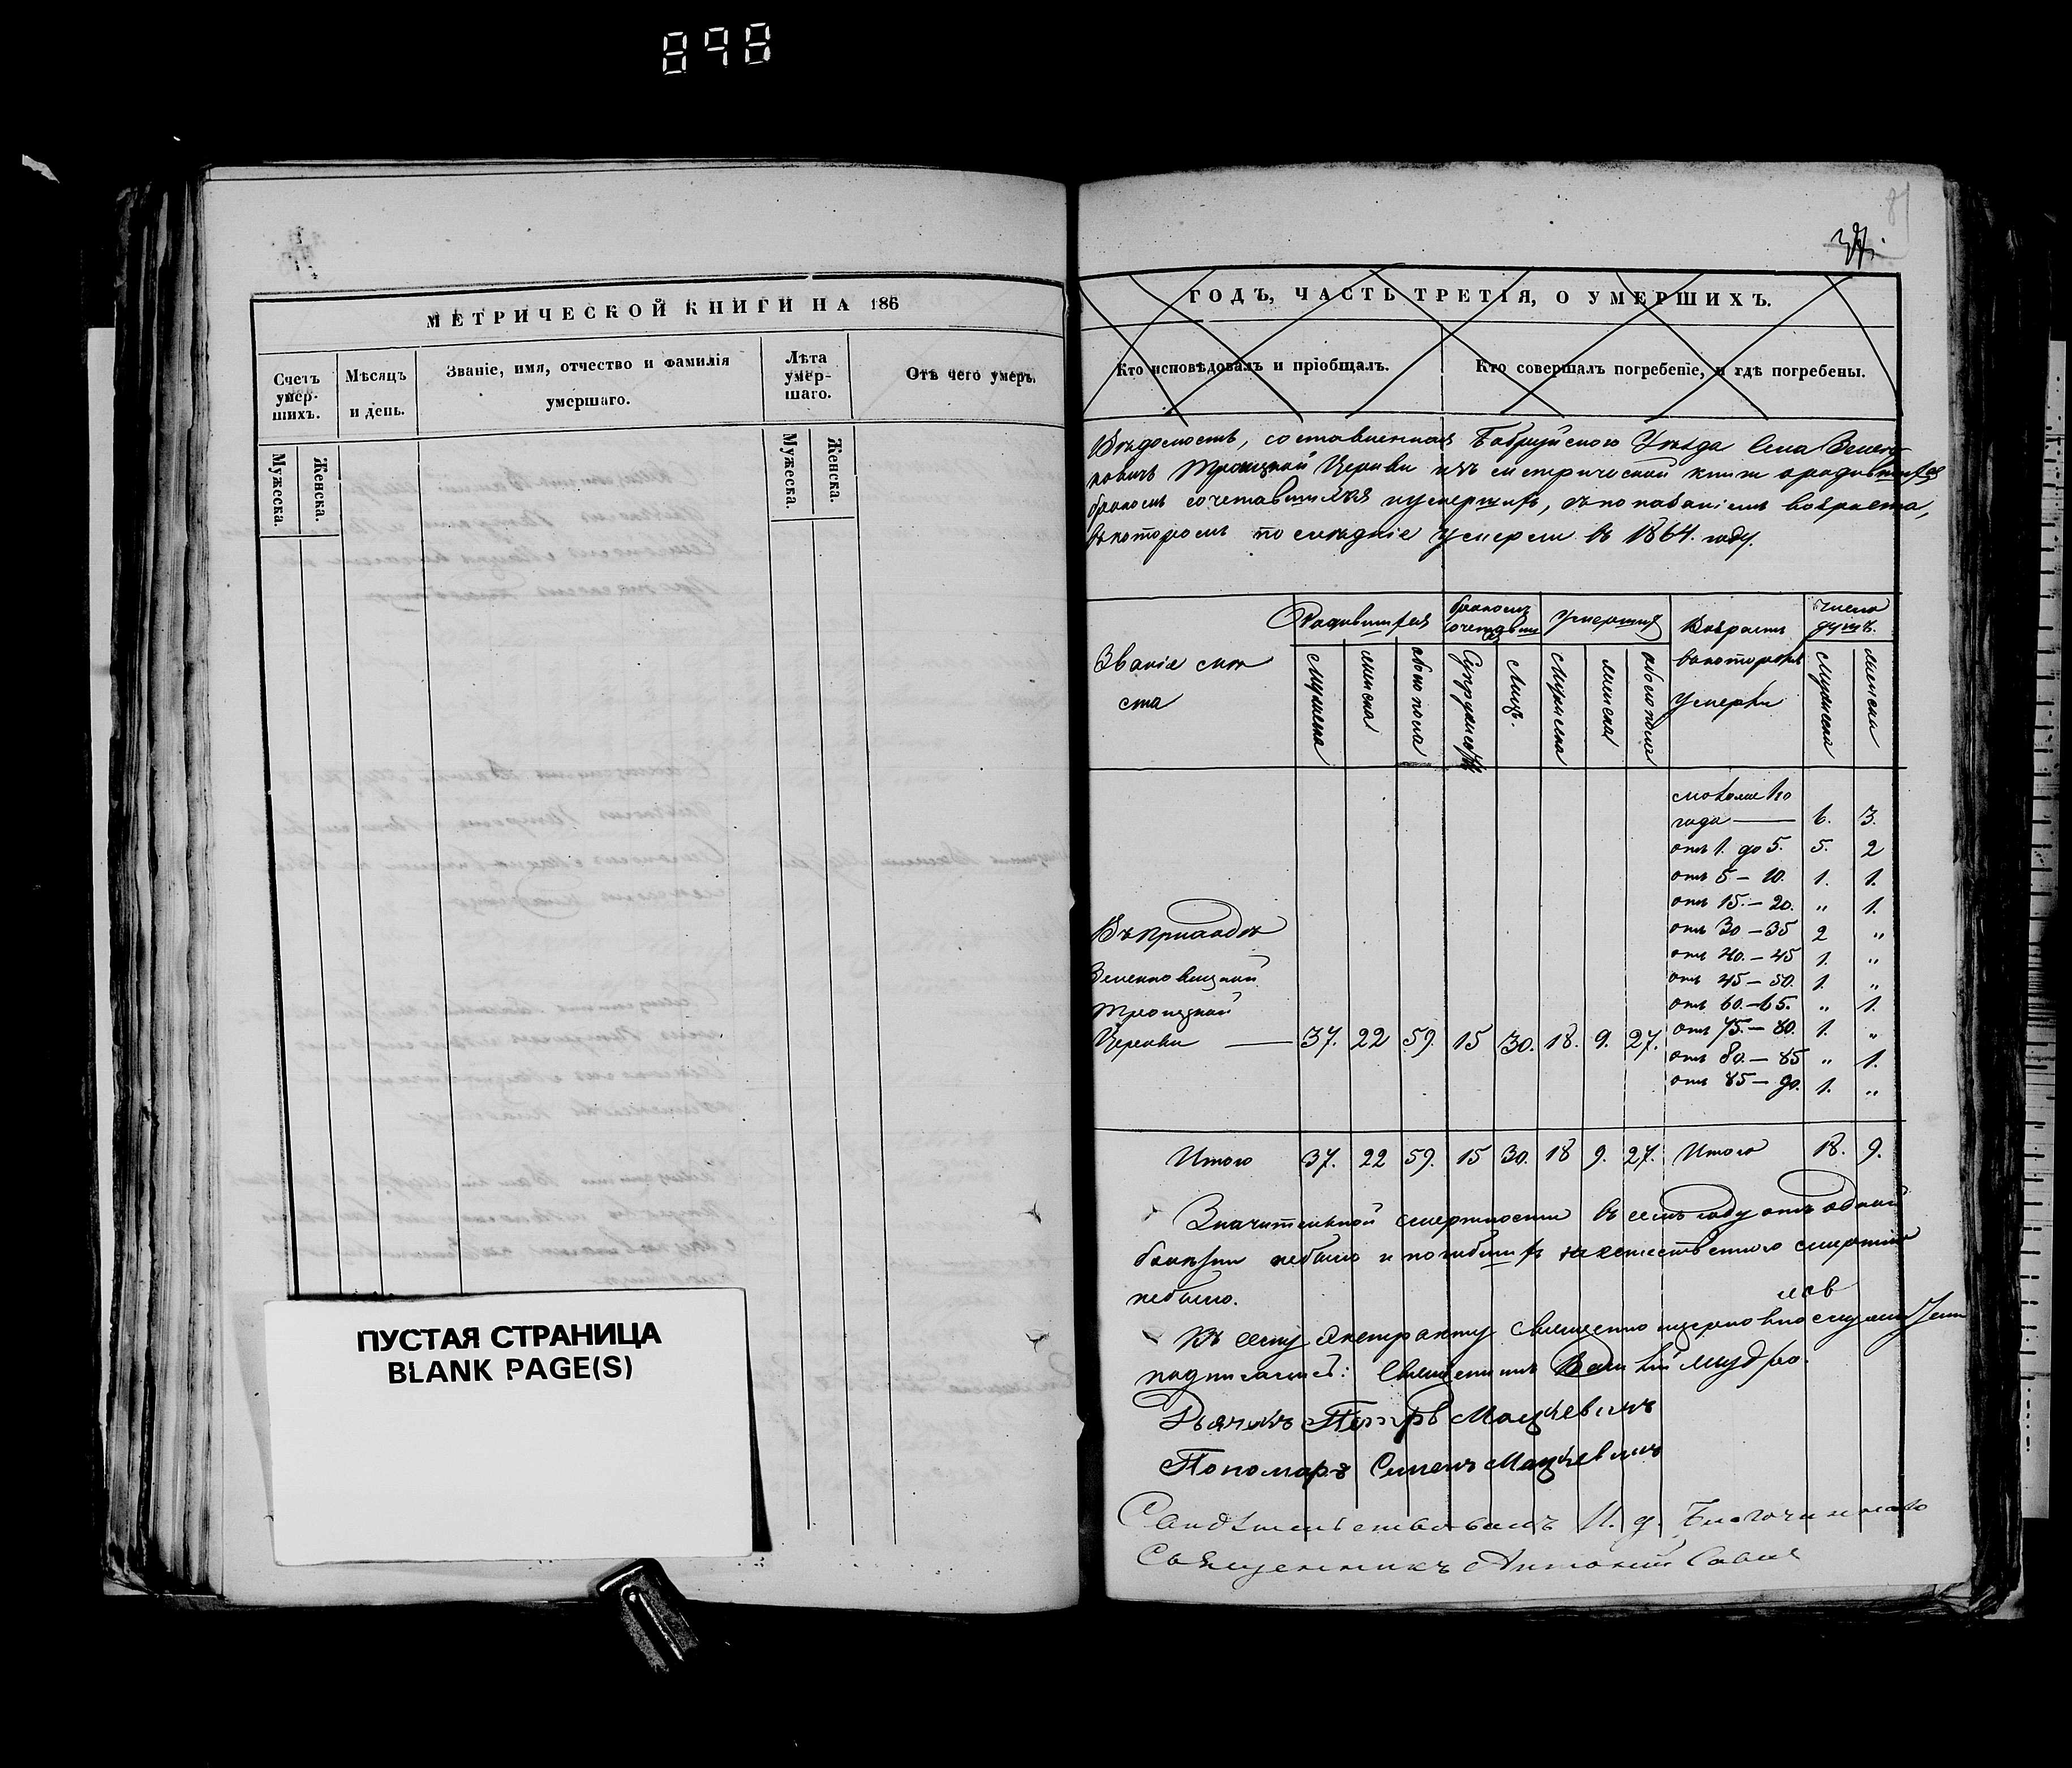 898
81
МЕТРИЧЕСКОЙ КНИГИ НА 186
Счетъ умер-
шихъ.
Мѣсяцъ
и день.
Званіе, имя, отчество и фамилія
умершаго.
Лѣта
умер-
шаго.
Отъ чего умеръ.
Мужеска.
Женска.
Мужеска.
Женска.
ПУСТАЯ СТРАНИЦА
BLANK PAGE(S)
ГОДЪ, ЧАСТЬ ТРЕТІЯ, О УМЕРШИХЪ.
Кто исповѣдовалъ и пріобщалъ.
Кто совершалъ погребеніе, и гдѣ погребены.
Вѣдомость, составленная Бобруйского Уѣзда Села Зелен-
ковичъ Троицкой Церкви изъ метрической книги ородившихся
бракомъ сочетавшихся иумершихъ, съпоказаніемъ возраста,
вкоторомъ последніе умерли въ 1864. году.
Званіе мѣ
ста
Родившихся
бракомъ
сочетавши
Умершихъ
Возрастъ
вкоторомъ
умерли
Число
душъ.
Мужеска
женска
обоего пола
Супружествъ
Лицъ.
Мужеска
женска
обоего пола
Мужеска
женска
моложе 1го
года — 6. 3.
отъ 1. до 5. 5. 2
отъ 5 — 10. 1. 1.
отъ 15. — 20. „ 1.
отъ 30 — 35 2 „
отъ 40. — 45 1. „
отъ 45 — 50. 1. „
отъ 60. — 65. „ 1.
отъ 75. — 80. 1. „
отъ 80. — 85 „ 1.
отъ 85 — 90. 1. „
Въ приходѣ
Зеленковицкой
Троицкой
Церкви — 37. 22 59. 15 30. 18. 9. 27.
Итого 37. 22 59. 15 30. 18 9. 27. Итого 18. 9.
Значительной смертности въ семъ году отъ одной
болѣзни небыло и погибшихъ неестественною смертію
небыло.
Къ сему экстракту священно ицерковнослужители
подписались: Священникъ Василій Мудро.
Дьячекъ Петръ Мацкевичъ
Пономарь Семенъ Мацкевичъ
Свидѣтельствовалъ И. д. Благочиннаго
Священникъ Антоній Савич